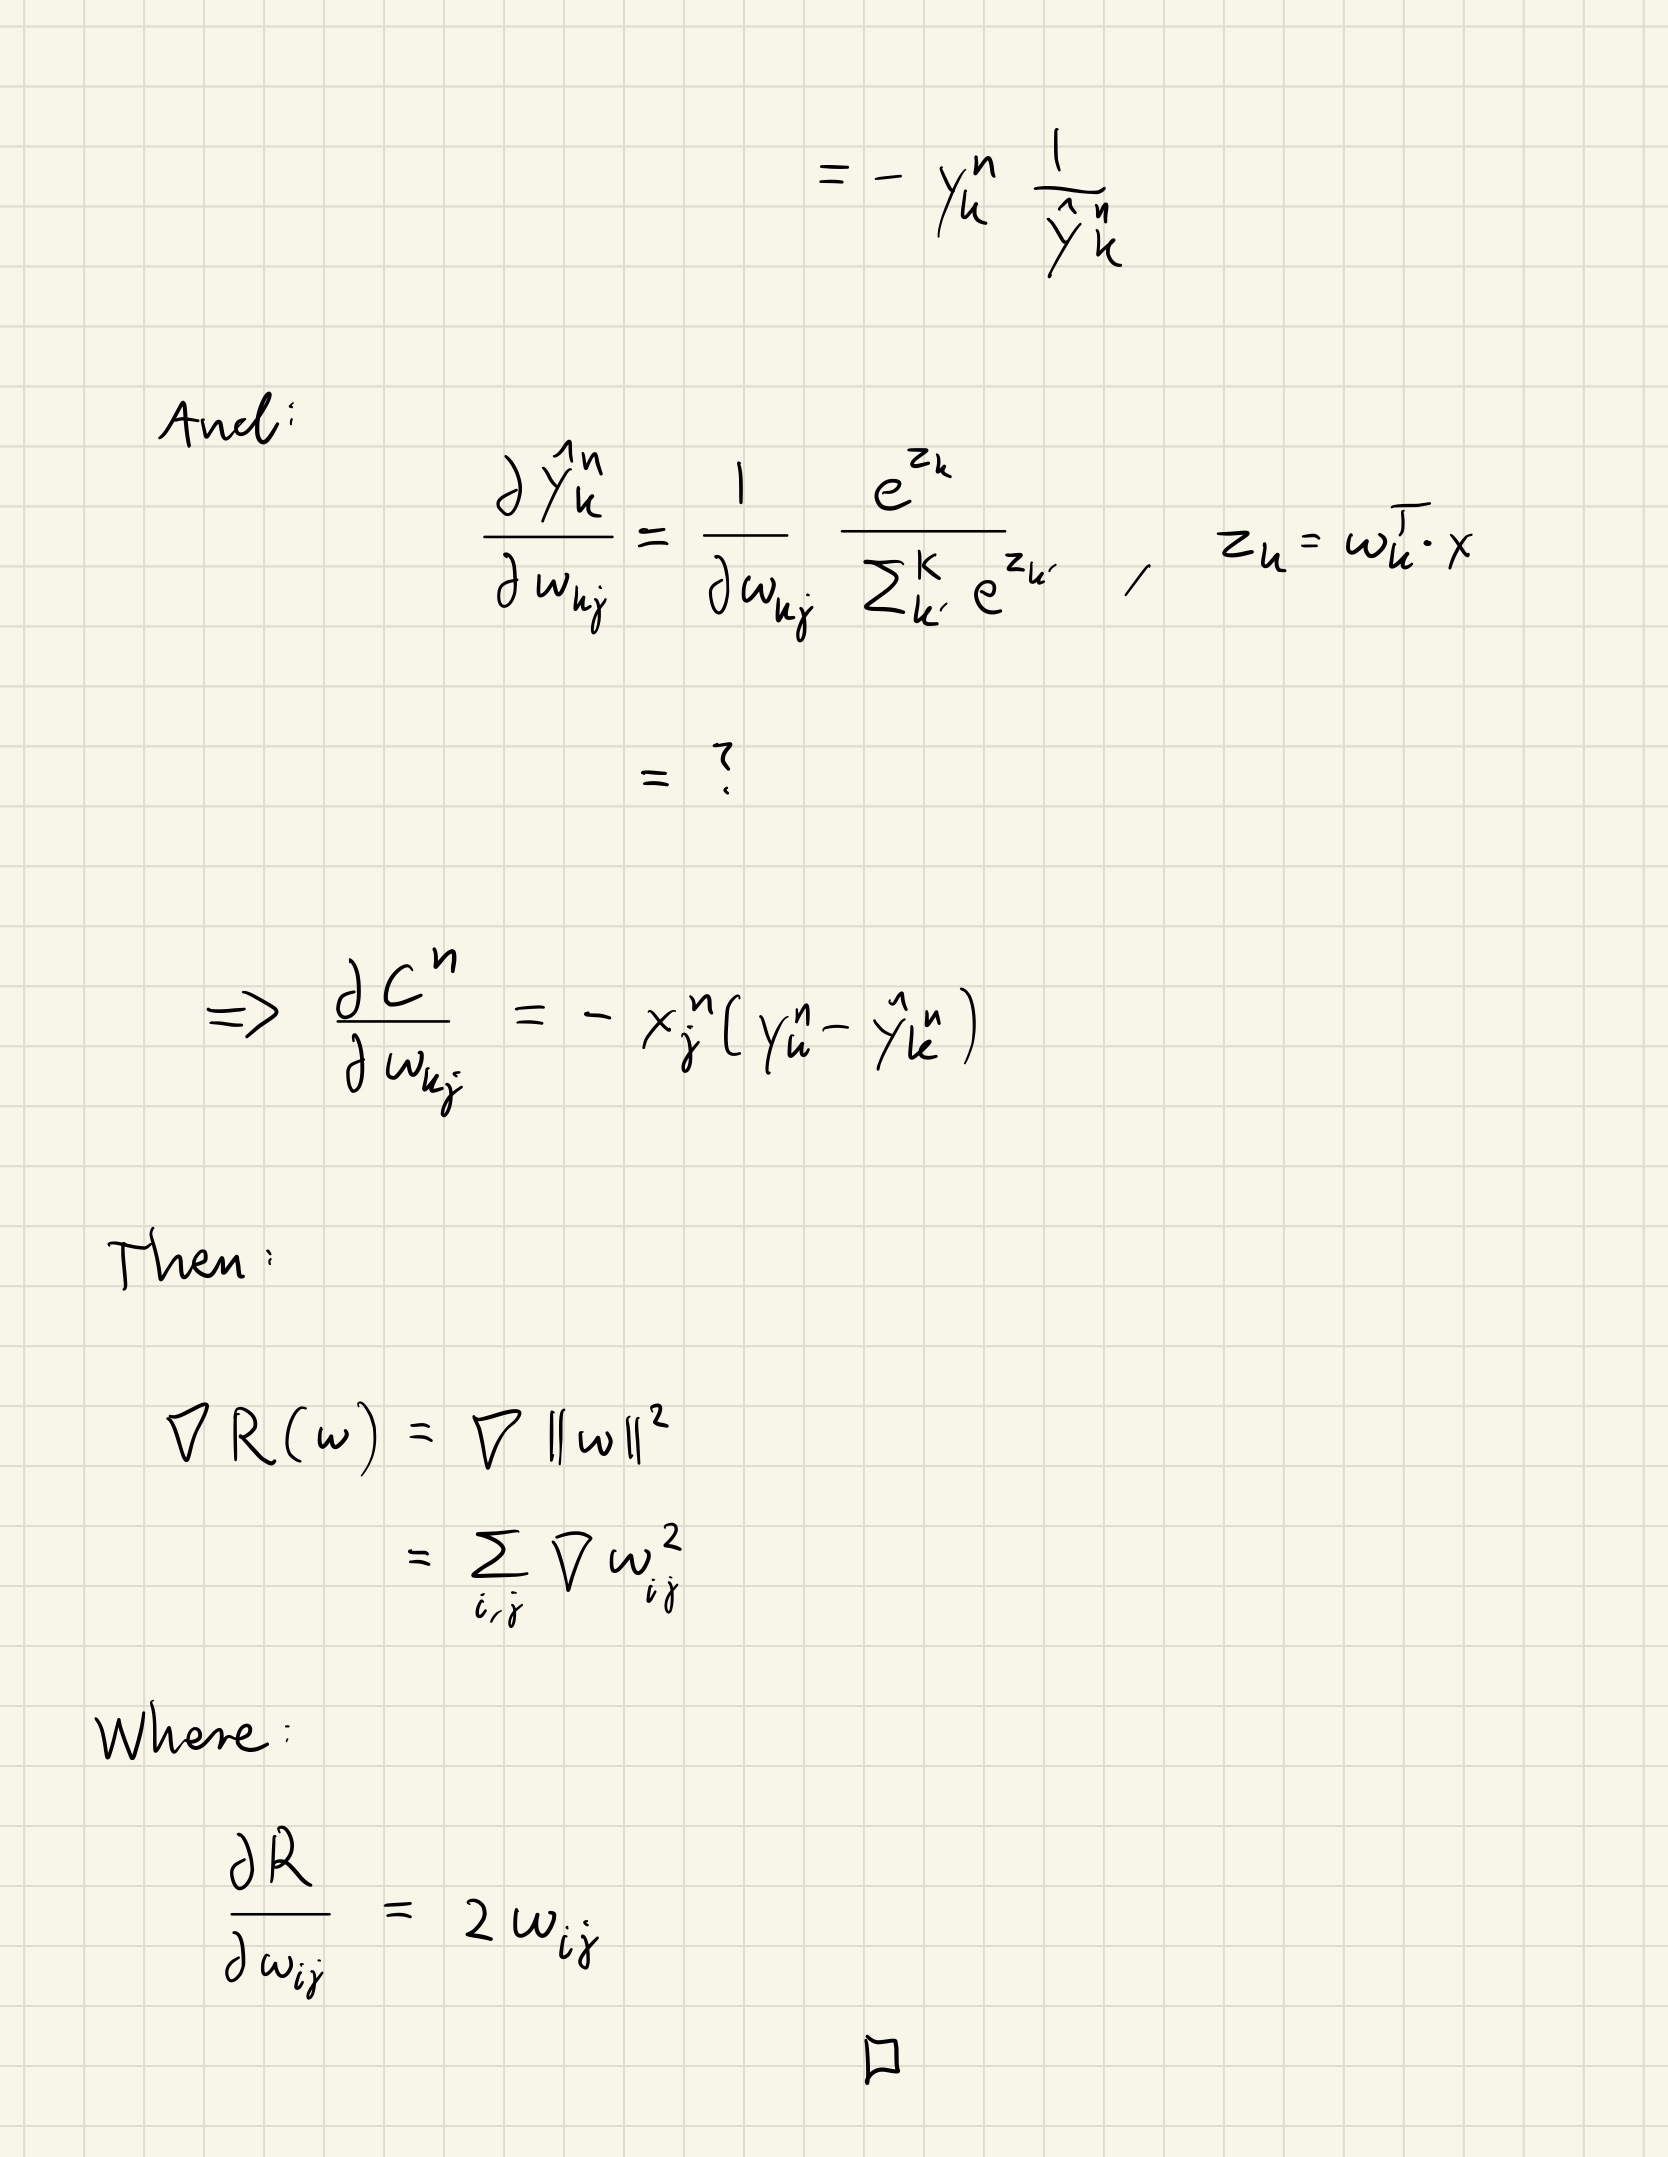 = - y_k^n 1/ŷ_k^n
And:
∂ŷ_k^n/∂w_kj = 1/∂w_kj e^{z_k}/∑_{k'}^K e^{z_k'} , z_k = w_k^T · x
= ?
=> ∂C^n/∂w_kj = - x_j^n (y_k^n - ŷ_k^n)
Then:
∇R(w) = ∇‖w‖²
= ∑_{i,j} ∇w_ij²
Where:
∂R/∂w_ij = 2w_ij
□